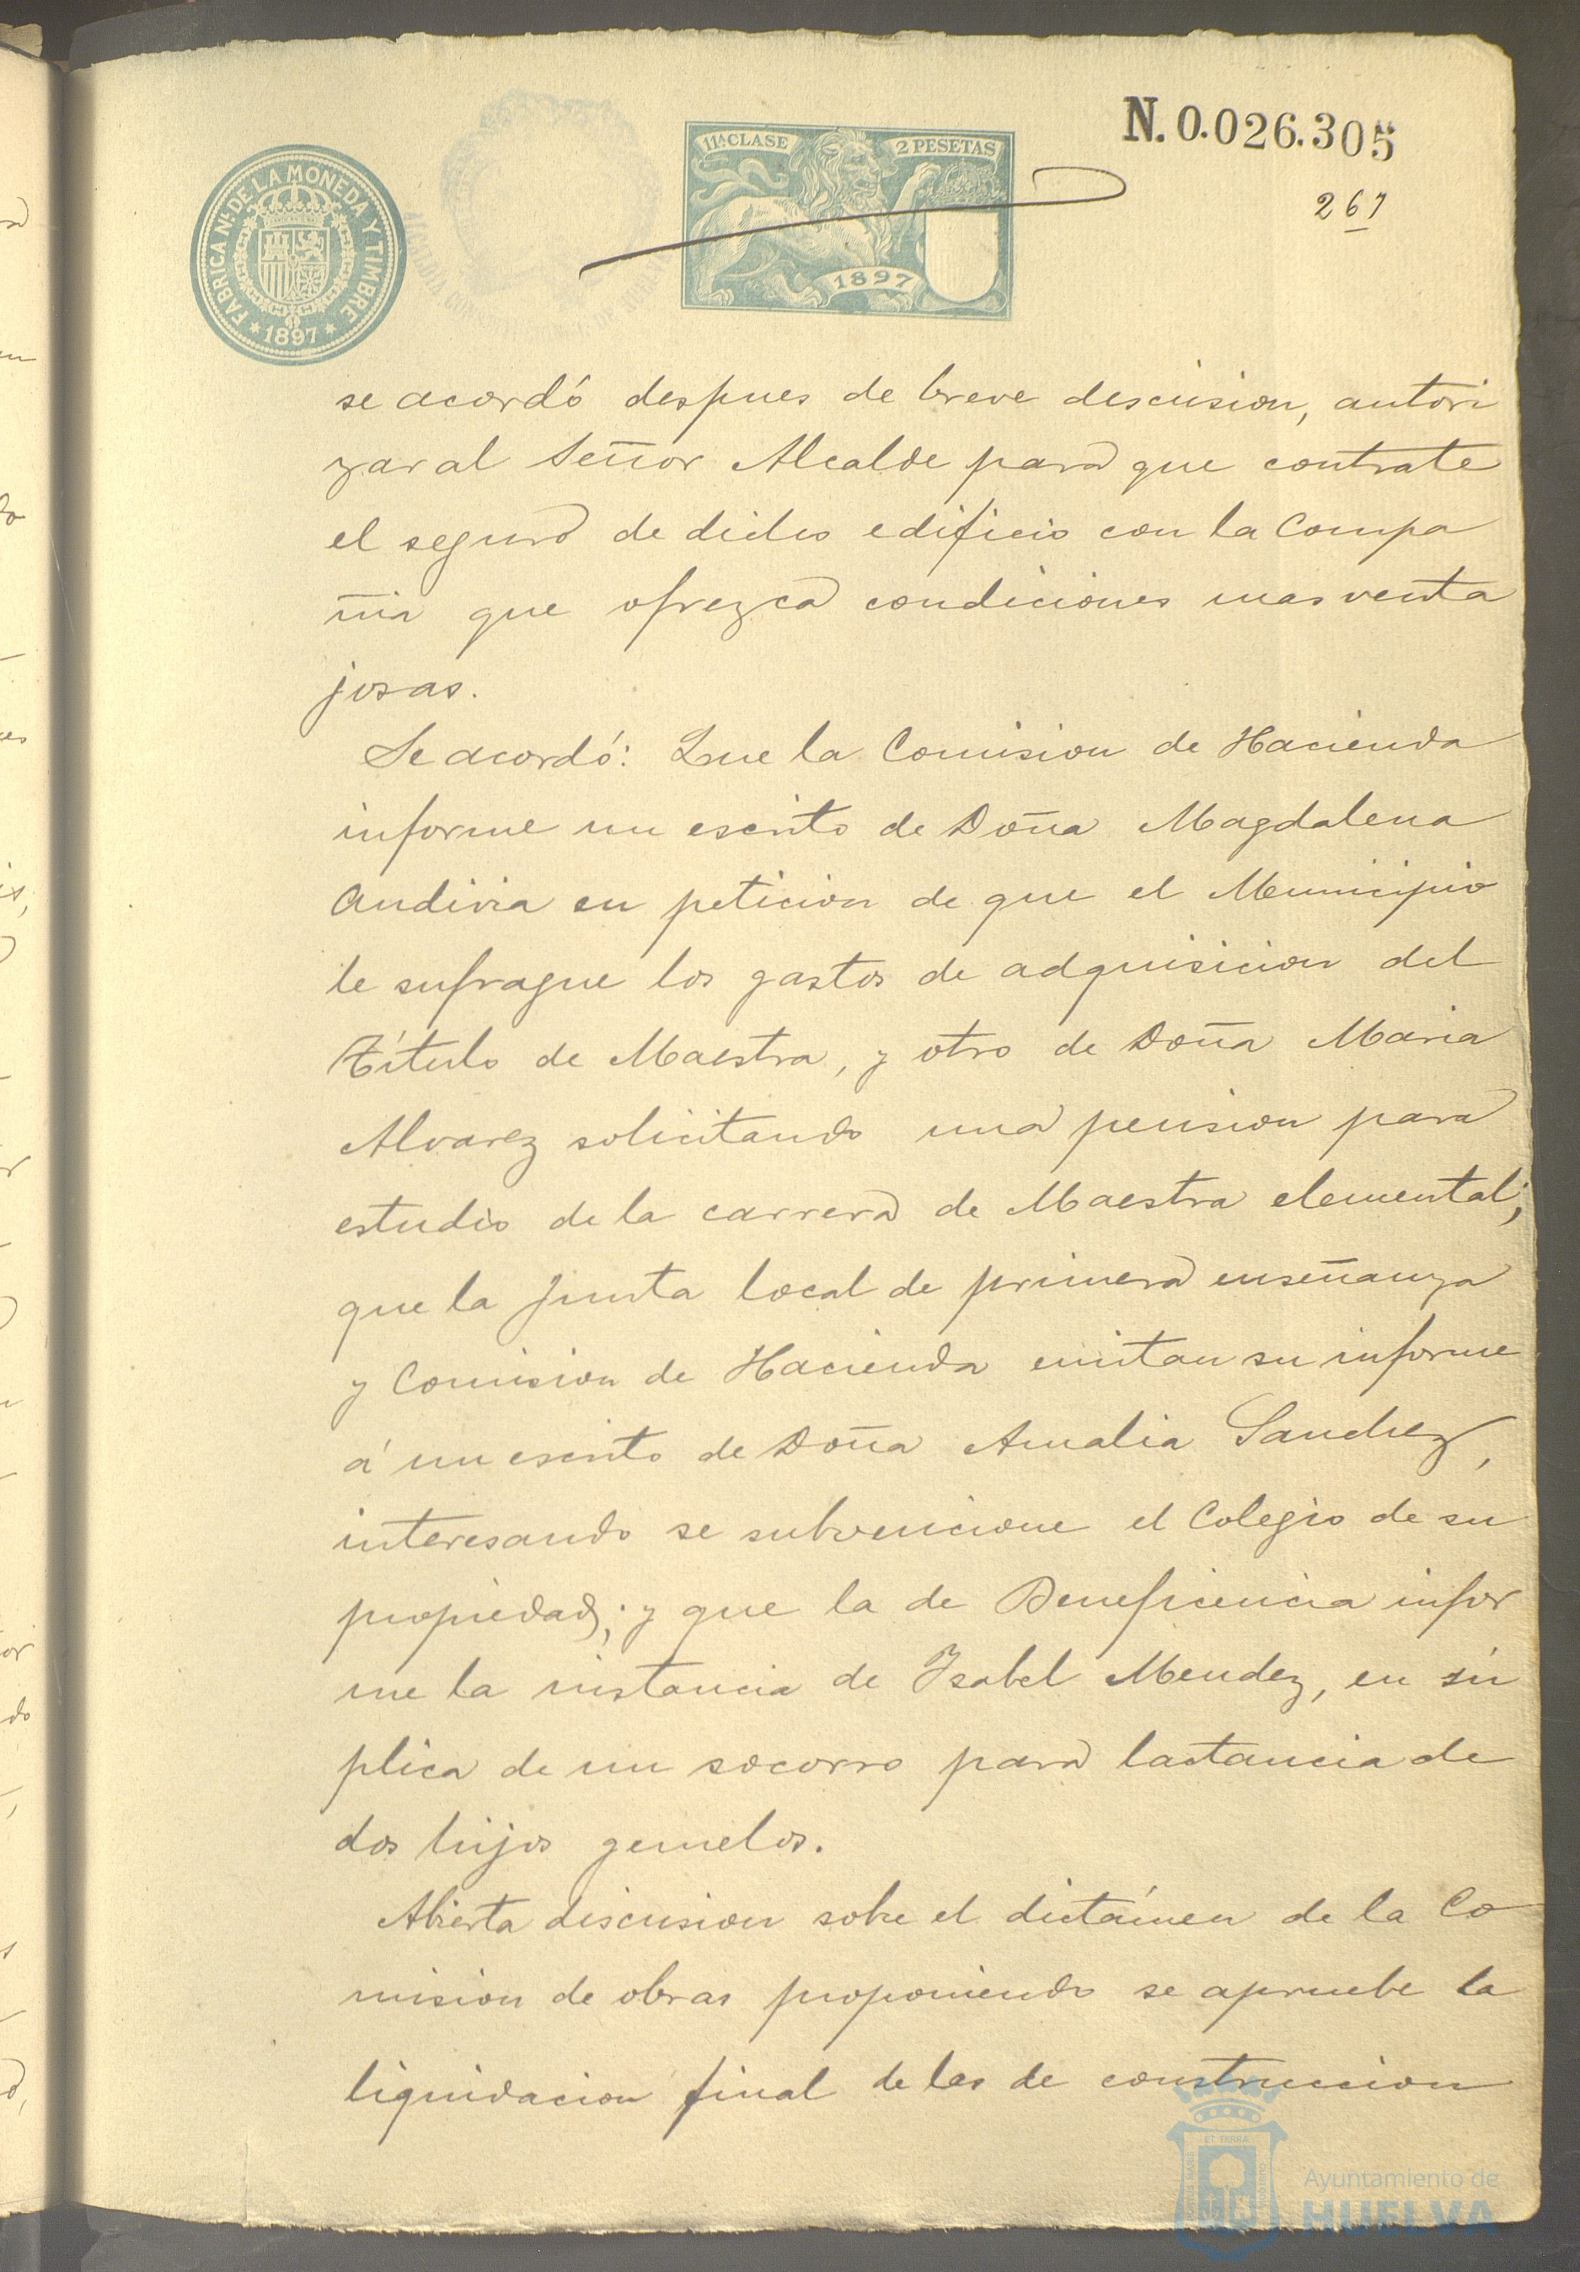 N. 0.026.305
267
11ª CLASE
2 PESETAS
1897
FABRICA NL. DE LA MONEDA Y TIMBRE
* 1897 *
se acordó despues de breve descusion, autori
zar al Señor Alcalde para que contrate
el seguro de dicho edificio con la Compa
ñia que ofrezca condiciones mas venta
josas.
Se acordó: Que la Comision de Hacienda
informe un escrito de Doña Magdalena
Andivia en peticion de que el Municipio
le sufrague los gastos de adquisicion del
Título de Maestra, y otro de Doña Maria
Alvarez solicitando una pension para
estudio de la carrera de Maestra elemental;
que la Junta local de primera enseñanza
y Comision de Hacienda emitan su informe
á un escrito de Doña Amalia Sanchez,
interesando se subvencione el Colegio de su
propiedad; y que la de Beneficencia infor
me la instancia de Isabel Mendez, en sú
plica de un socorro para lactancia de
dos hijos gemelos.
Abierta discusion sobre el dictámen de la Co
mision de obras proponiendo se apruebe la
liquidacion final de las de construccion
Ayuntamiento de
HUELVA